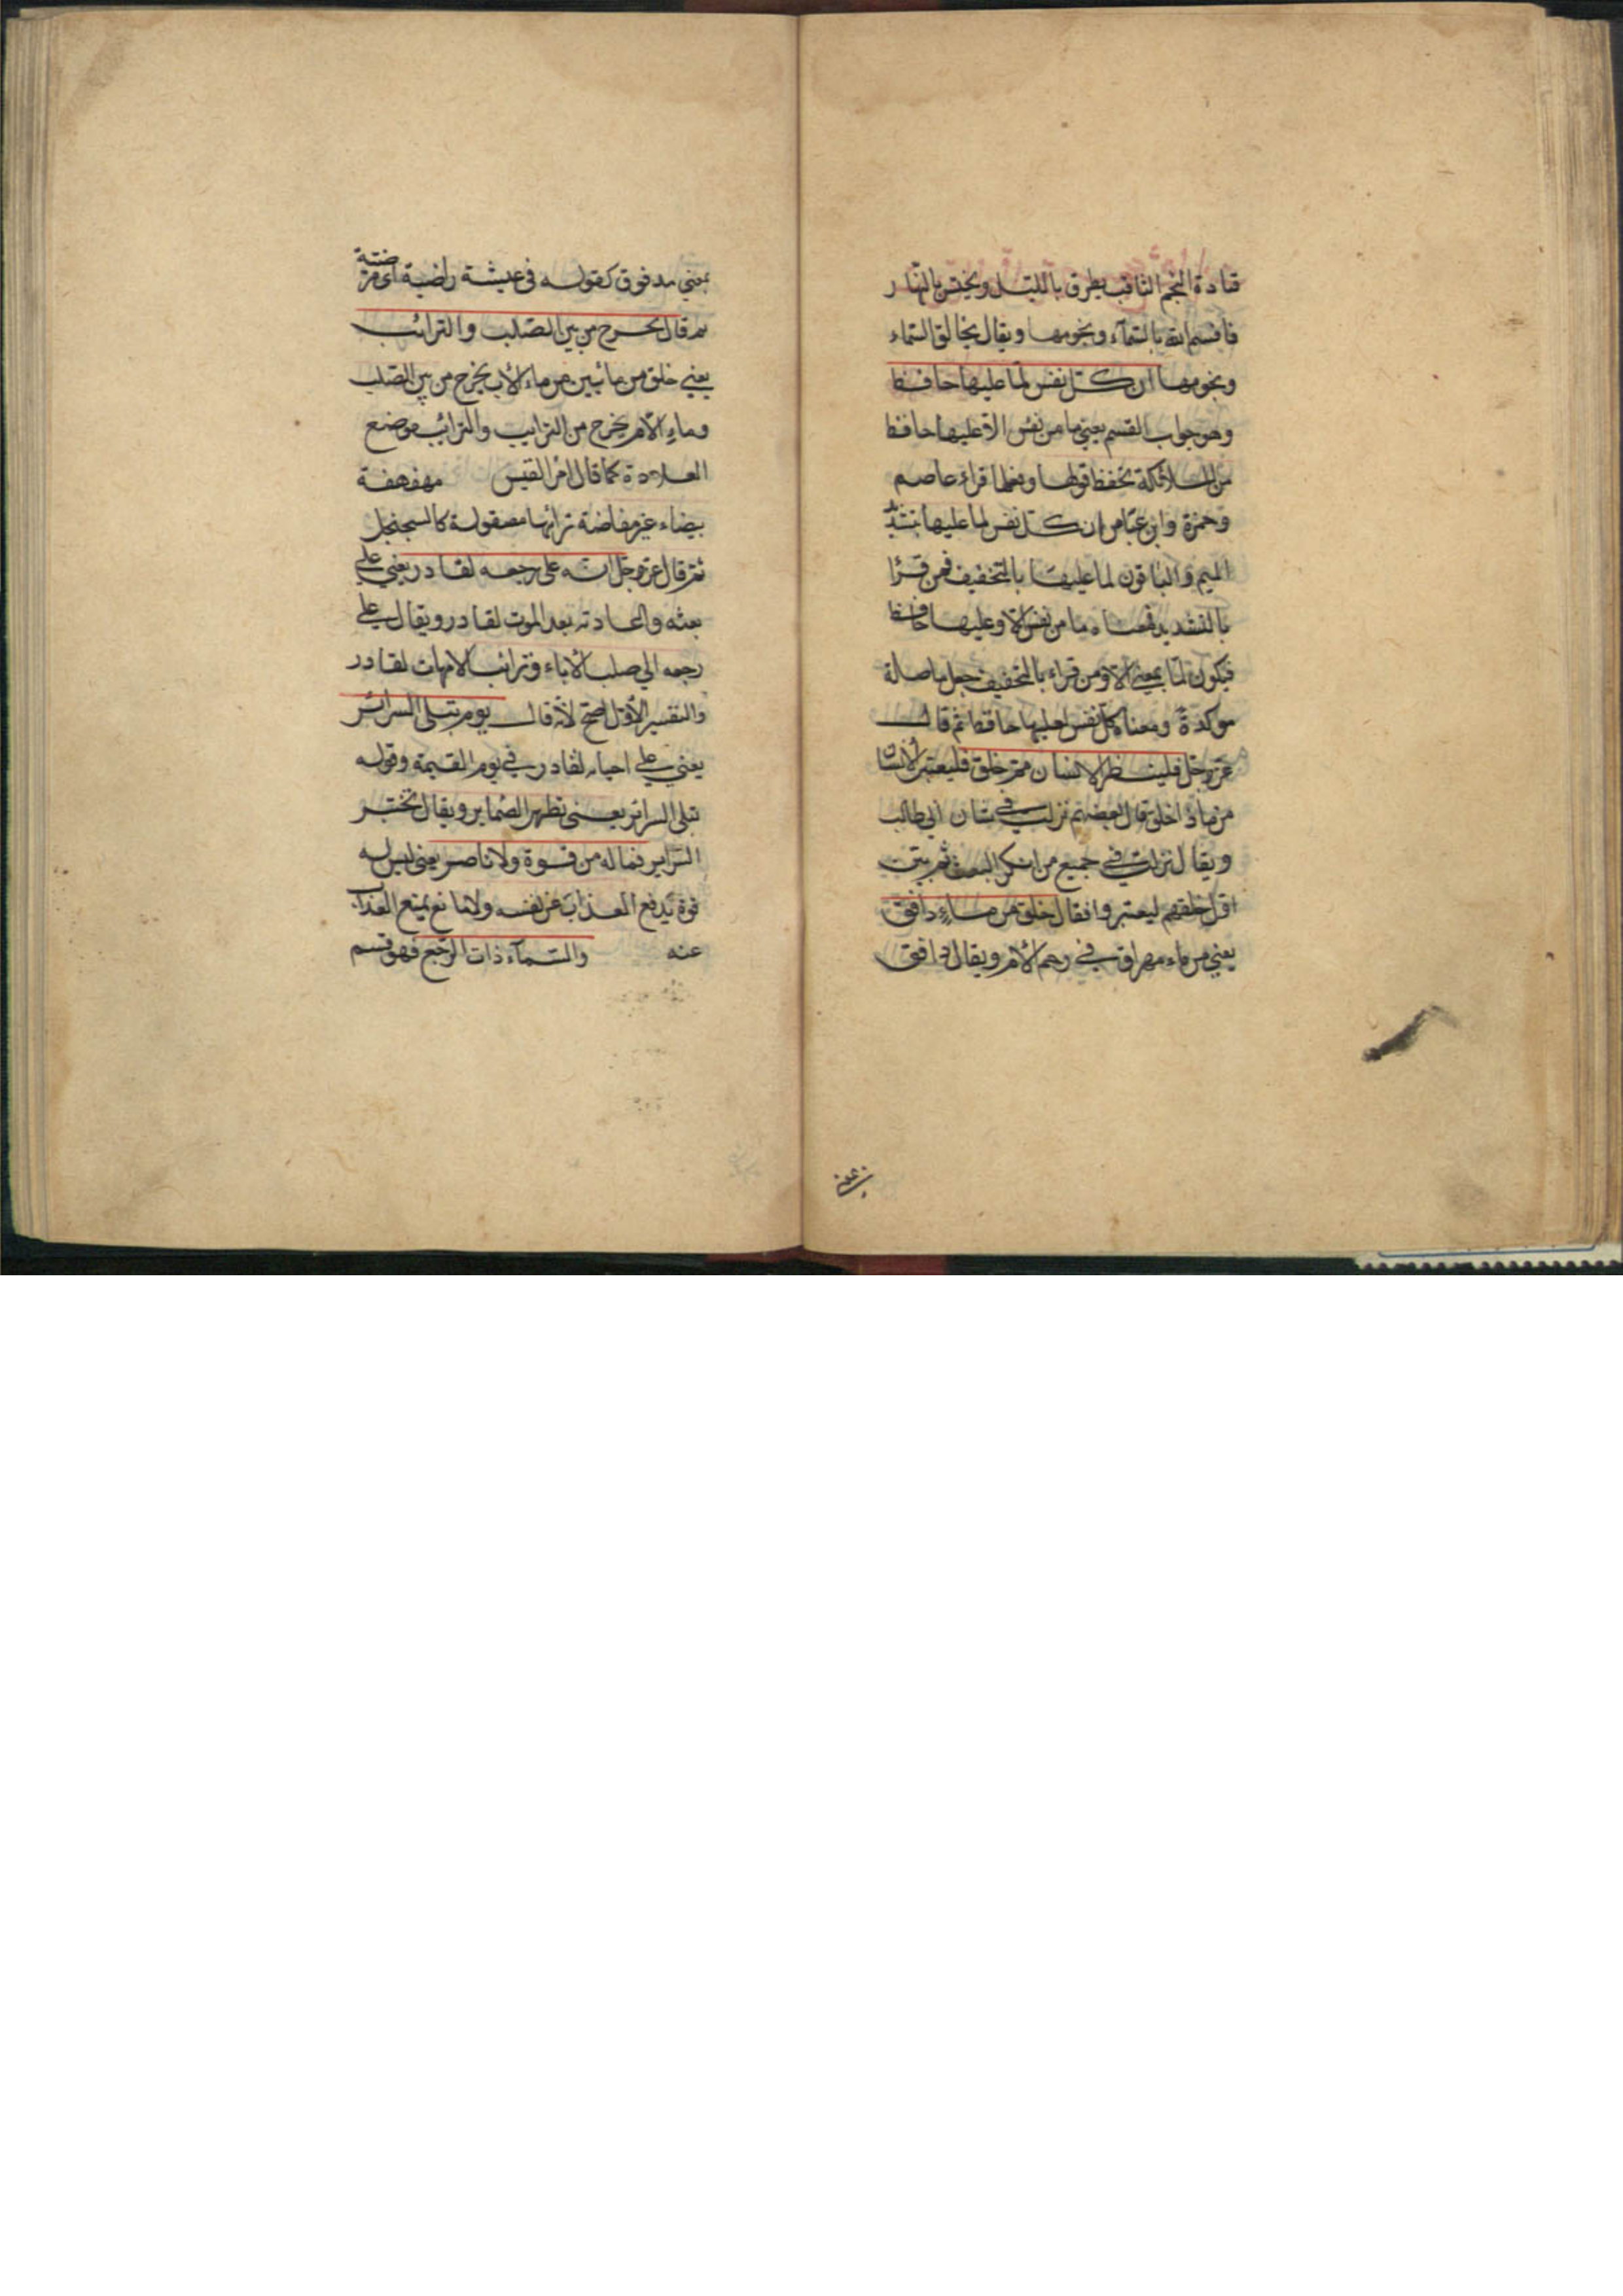 قتادة النجم الثاقب يطرق بالليل ويخنس بالنهار
فاقسم الله بالسّمآء ونجومها ويقال بخالق السّماء
ونجومها ان كل نفس لما عليها حافظ
وهو جواب القسم يعني ما من نفس الّا عليها حافظا
من الملائكة يحفظ قولها وفعلها قراء عاصم
وحمزة وابن عبّاس ان كل نفس لما عليها بتشديد
الميم والباقون لما عليها بالتخفيف فمن قرأ
بالتشديد فمعناه ما من نفس الا وعليها حافظ
فيكون لمّا بمعنى الا ومن قراء بالتخفيف جعل ما صلة
موكدة ومعناه كل نفس لعليها حافظ ثم قال
عزّ وجلّ فلينظر الانسان ممّ خلق فليعتبر الانسان
من ماذا خلق قال بعضهم نزلت في شان ابي طالب
ويقال نزلت في جميع من انكر البعث ثم بيّن
اوّل خلقهم ليعتبروا فقال خلق من ماءٍ دافق
يعني من ماء مهراق في رحم الأم ويقال دافق
بمعني مدفوق كقوله في عيشة راضية اي مرضيّة
ثم قال يخرج من بين الصّلب والترائب
يعني خلق من مائين من ماء الأب يخرج من بين الصّلب
وماء الأم يخرج من الترايب والترائب موضع
القلادة كما قال امرؤ القيس مهفهفة
بيضاء غير مفاضة ترائبها مصقولة كالسجنجل
ثم قال عزّ وجلّ انّه على رجعه لقادر يعني علي
بعثه واعادته بعد الموت لقادر ويقال علي
رجعه الي صلب الأباء وترائب الامهات لقادر
والتفسير الأوّل اصح لأنه قال يوم تبلى السرائر
يعني علي احياءه لقادر في يوم القيمة وقوله
تبلى السرائر يعني تظهر الضماير ويقال تختبر
السّراير فما له من قوة ولا ناصر يعني ليس له
قوة يدفع العذاب عن نفسه ولا مانع يمنع العذاب
عنه والسّمآء ذات الرّجع فهو قسم